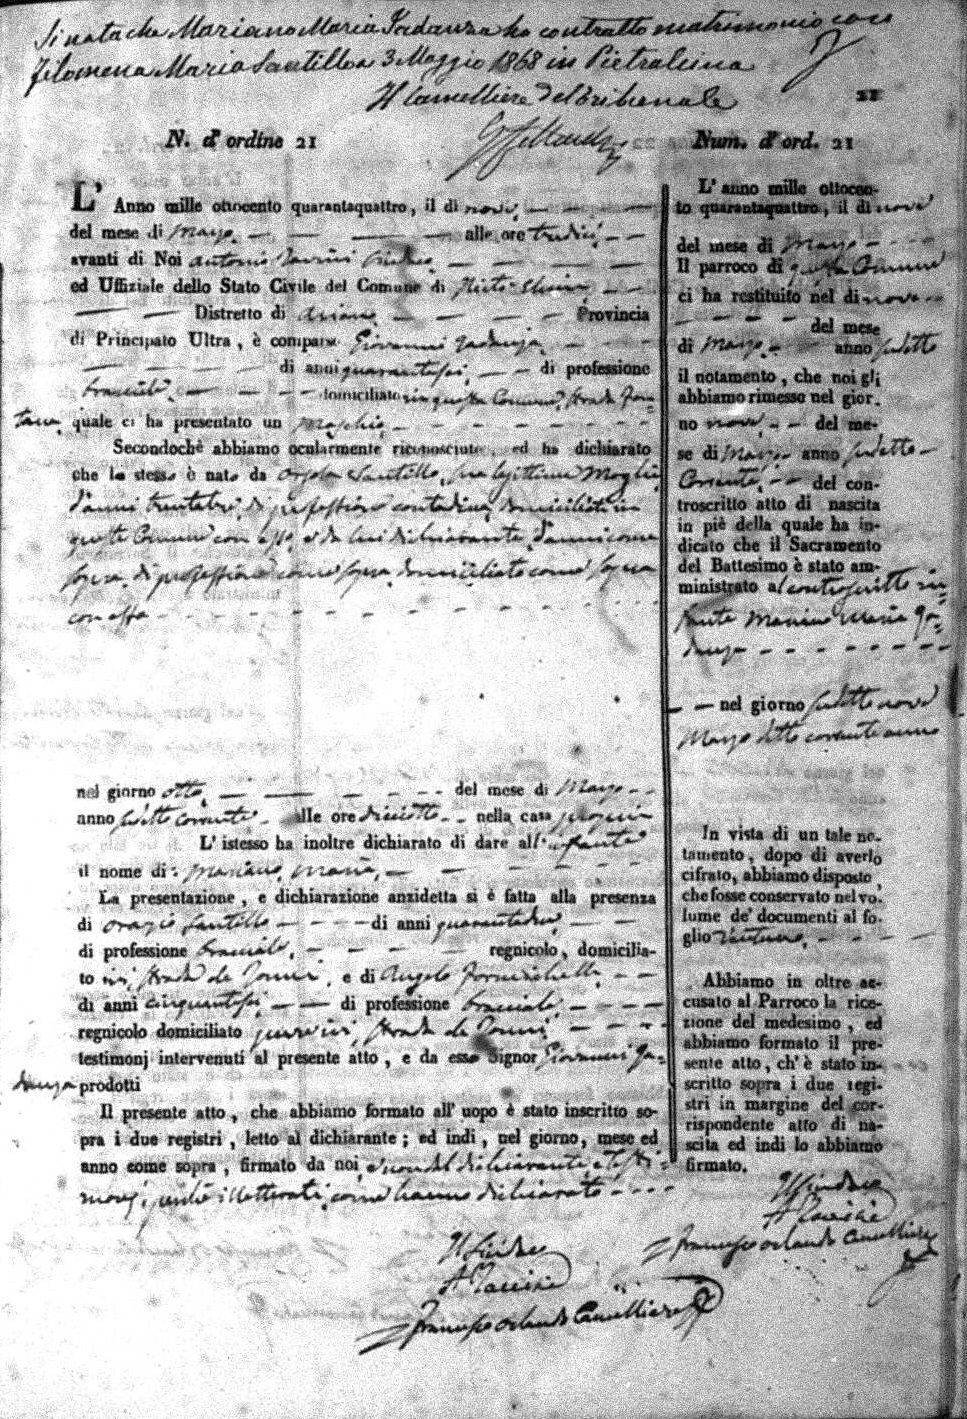 Si nota che Mariano Maria Iadanza ha contratto matrimonio con
Filomena Maria Santillo a 3 Maggio 1868 in Pietralcina
Il Cancelliere del Tribunale
21
N. d'ordine 21
L' Anno mille ottocento quarantaquattro, il di nove
del mese di Marzo alle ore tredici
avanti di Noi Antonio Sindaco
ed Uffiziale dello Stato Civile del Comune di
Distretto di Ariano Provincia
di Principato Ultra, è comparso Giovanni Jadanza
di anni quarantasei di professione
bracciale domiciliato in questa Comune, Strada Fon-
tana quale ci ha presentato un maschio
Secondochè abbiamo ocularmente riconosciuto, ed ha dichiarato
che lo stesso è nato da Orsola Santillo, sua legittima Moglie
d'anni trentatre, di professione contadina, domiciliata in
questa Comune con esso, e da lui dichiarante, d'anni come
sopra, di professione come sopra, domiciliato come sopra
con essa
nel giorno otto del mese di Marzo
anno sudetto corrente alle ore diciotto nella casa propria
L' istesso ha inoltre dichiarato di dare all'infante
il nome di: Mariano Maria
La presentazione, e dichiarazione anzidetta si è fatta alla presenza
di Orazio Santillo di anni
di professione bracciale regnicolo, domicilia-
to ivi, strada de e di Angelo
di anni cinquantasei di professione bracciale
regnicolo domiciliato pure ivi, strada de
testimonj intervenuti al presente atto, e da esso Signor Giovanni Ja-
danza prodotti
Il presente atto, che abbiamo formato all' uopo è stato inscritto so-
pra i due registri, letto al dichiarante; ed indi, nel giorno, mese ed
anno come sopra, firmato da noi, e non dal dichiarante e testi-
monj, perchè illetterati, come hanno dichiarato
Il Sindaco
Francesco Orlando Cancelliere
Num. d' ord. 21
L' anno mille ottocen-
to quarantaquattro, il di nove
del mese di Marzo
Il parroco di questa Comune
ci ha restituito nel di nove
del mese
di Marzo anno sudetto
il notamento, che noi gli
abbiamo rimesso nel gior-
no nove del me-
se di Marzo anno sudetto
Corrente del con-
troscritto atto di nascita
in piè della quale ha in-
dicato che il Sacramento
del Battesimo è stato am-
ministrato al controscritto in-
fante Mariano Maria Ja-
danza
nel giorno sudetto nove
Marzo detto corrente anno
In vista di un tale no-
tamento, dopo di averlo
cifrato, abbiamo disposto,
che fosse conservato nel vo-
lume de' documenti al fo-
glio ventuno
Abbiamo in oltre ac-
cusato al Parroco la rice-
zione del medesimo, ed
abbiamo formato il pre-
sente atto, ch' è stato in-
scritto sopra i due regi-
stri in margine del cor-
rispondente atto di na-
scita ed indi lo abbiamo
firmato.
Il Sindaco
Francesco Orlando Cancelliere